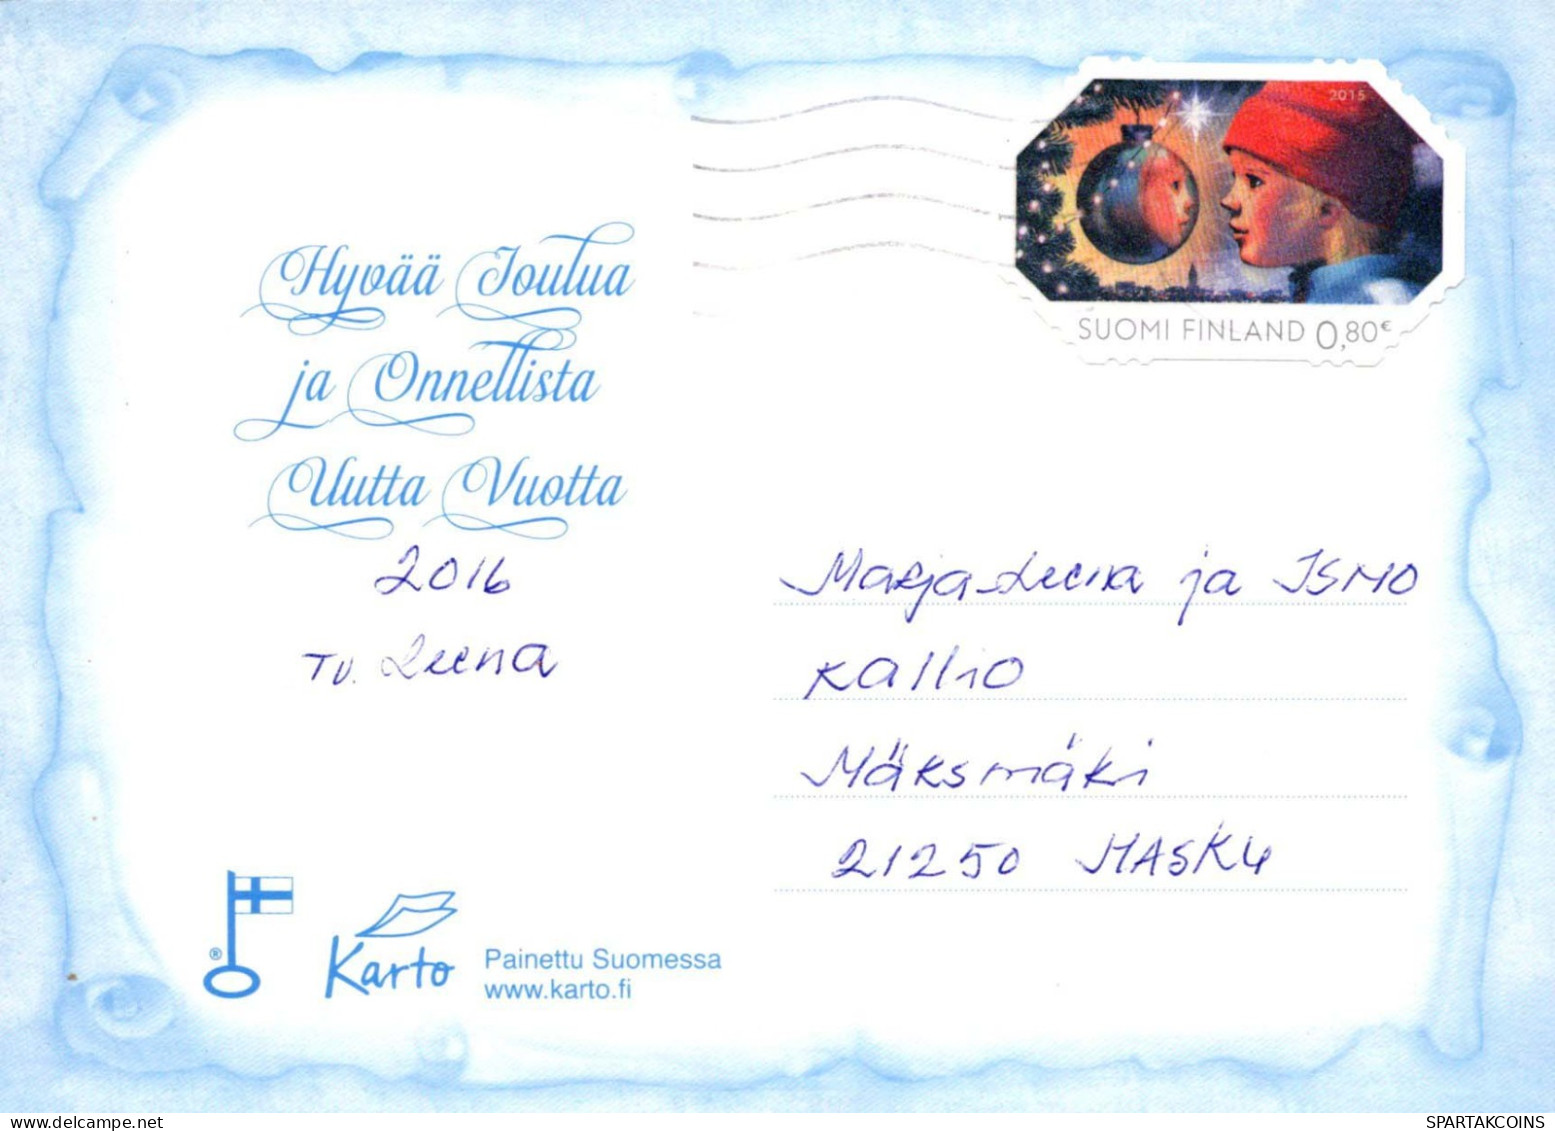 2015
SUOMI FINLAND 0,80€
Hyvää Joulua
ja Onnellista
Uutta Vuotta
2016
Tv. Leena
Marja-Leena ja ISMO
Kallio
Mäksmäki
21250 MASKU
® Karto
Painettu Suomessa
www.karto.fi
delcampe.net
SPARTAKCOINS